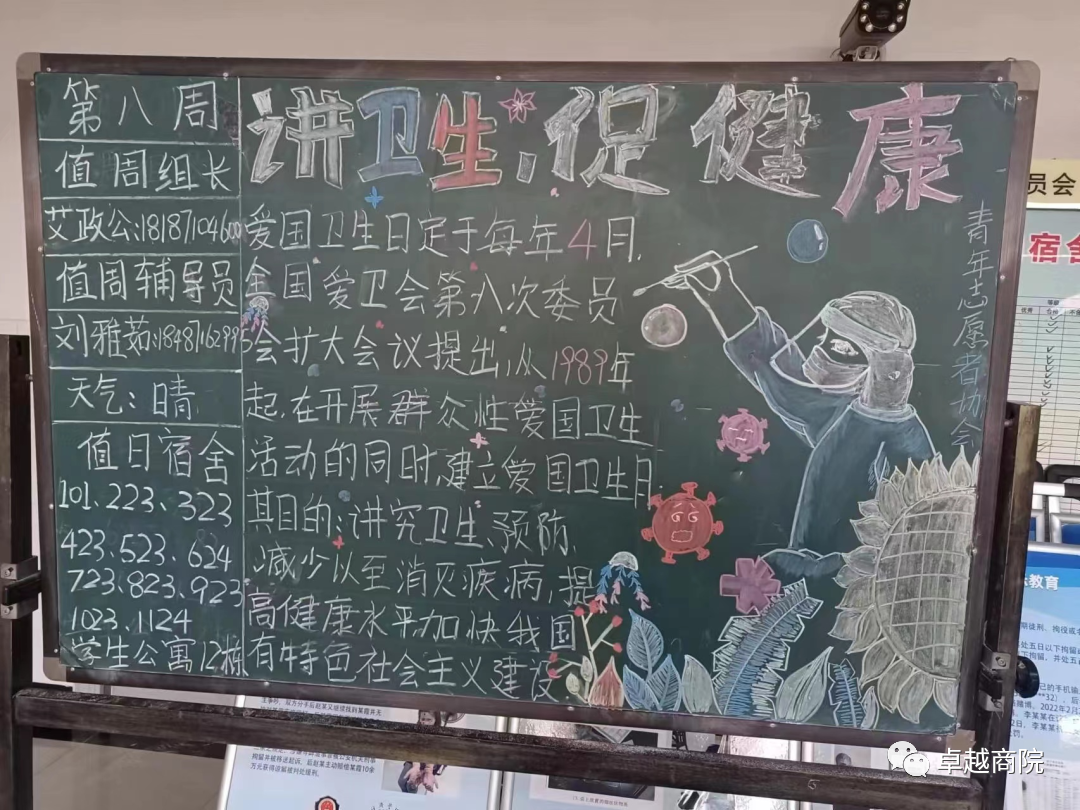 第八周
值周组长
艾政公:18187104600
值周辅导员
刘雅茹:18487162995
天气：晴
值日宿舍
101、223、323
423、523、624
723、823、923
1023、1124
学生公寓12栋
讲卫生，促健康
爱国卫生日定于每年4月，
全国爱卫会第八次委员
会扩大会议提出，从1989年
起，在开展群众性爱国卫生
活动的同时，建立爱国卫生月
其目的：讲究卫生、预防，
减少以至消灭疾病，提
高健康水平，加快我国
有特色社会主义建设
青年志愿者协会
员会
宿舍
卓越商院